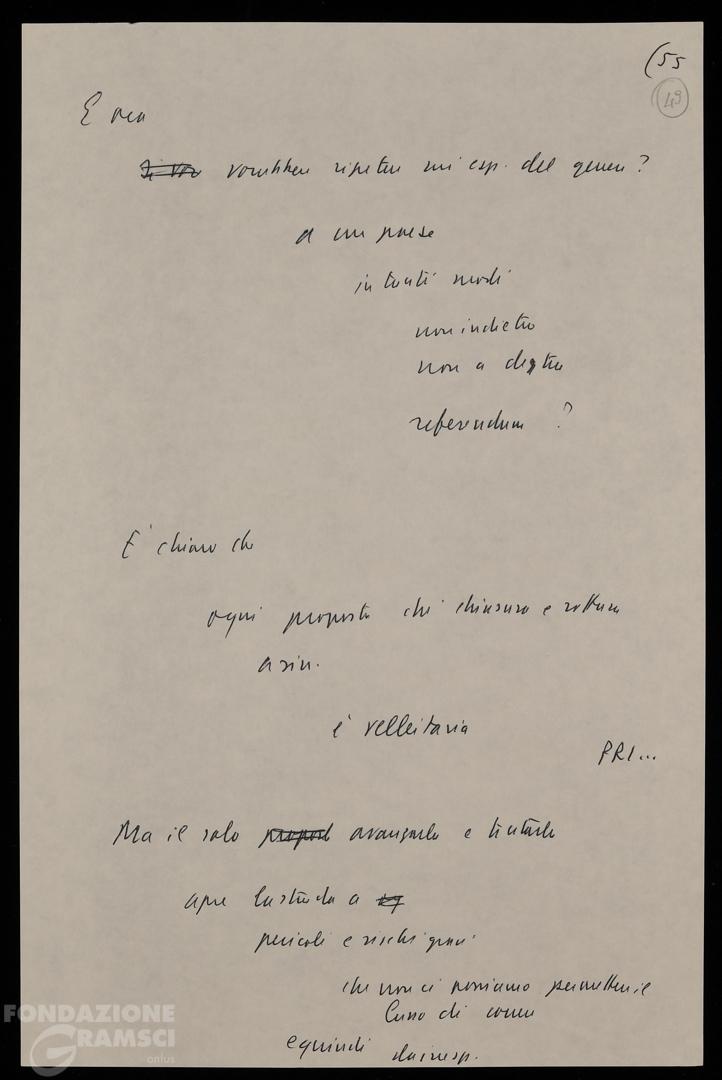 (55
49
E ora
~~Si vor~~ vorrebbero ripetere un' esp. del genere?
a un paese
in tanti modi
non indietro
non a destra
referendum ?
E' chiaro che
ogni proposta che chiusura e rottura
a sin.
è velleitaria
PRI...
Ma il solo ~~propost~~ avanzarle e tentarle
apre la strada a
pericoli e rischi gravi
che non ci possiamo permettere il
lusso di correre
e quindi da irresp.
FONDAZIONE
GRAMSCI
onlus